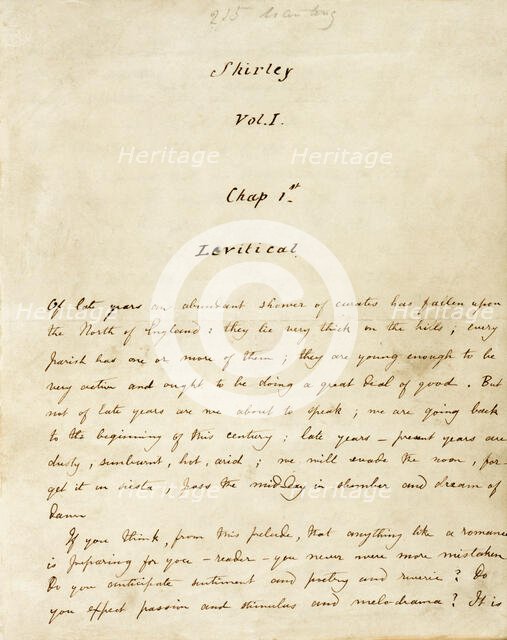 215
Shirley
Vol. I.
Chap 1st
Levitical.
Of late years an abundant shower of curates has fallen upon
the North of England: they lie very thick on the hills; every
parish has one or more of them; they are young enough to be
very active and ought to be doing a great deal of good. But
not of late years are we about to speak; we are going back
to the beginning of this century; late years - present years are
dusty, sunburnt, hot, arid; we will evade the noon, for-
get it in siesta, pass the mid-day in slumber and dream of
dawn
If you think, from this prelude, that anything like a romance
is preparing for you - reader - you never were more mistaken
Do you anticipate sentiment and poetry and reverie? Do
you expect passion and stimulus and melodrama? It is
Heritage Heritage Heritage
Heritage Heritage
Heritage Heritage Heritage
Heritage Heritage